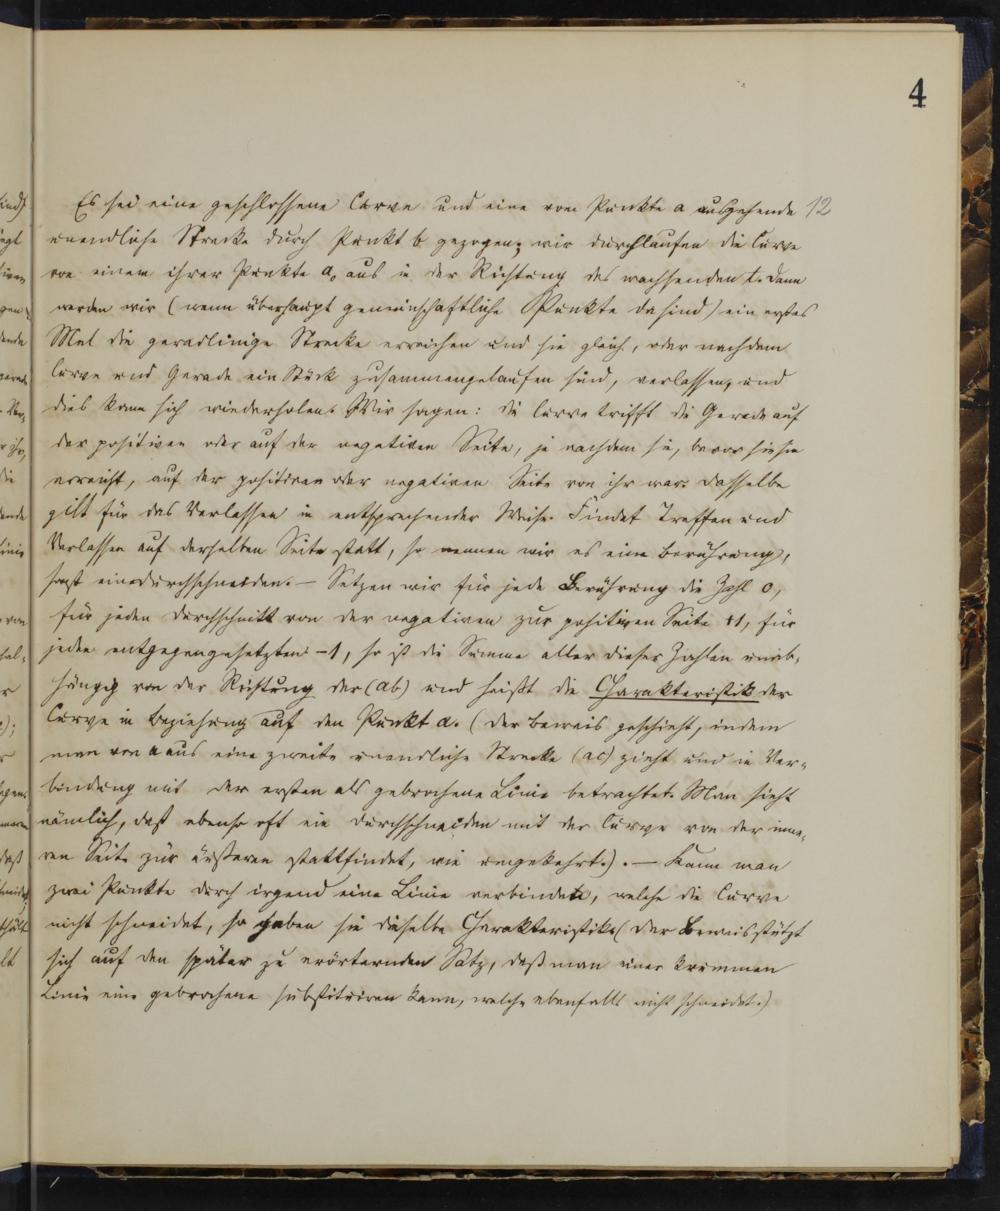 4
12
Es sei eine geschlossene Curve und eine vom Punkte a ausgehende
unendliche Strecke durch Punkt b gezogen; wir durchlaufen die Curve
von einem ihrer Punkte a₀ aus in der Richtung des wachsenden t. Dann
werden wir (wenn überhaupt gemeinschaftliche Punkte da sind) ein erstes
Mal die geradlinige Strecke erreichen und sie gleich, oder nachdem
Curve und Gerade ein Stück zusammengelaufen sind, verlassen, und
dies kann sich wiederholen. Wir sagen: die Curve trifft die Gerade auf
der positiven oder auf der negativen Seite, je nachdem sie, bevor sie sie
erreicht, auf der positiven oder negativen Seite von ihr war. Dasselbe
gilt für das Verlassen in entsprechender Weise. Findet Treffen und
Verlassen auf derselben Seite statt, so nennen wir es eine Berührung,
sonst ein Durchschneiden. — Setzen wir für jede Berührung die Zahl 0,
für jeden Durchschnitt von der negativen zur positiven Seite +1, für
jeden entgegengesetzten -1, so ist die Summe aller dieser Zahlen unab-
hängig von der Richtung der (ab) und heißt die Charakteristik der
Curve in Beziehung auf den Punkt a. (Der Beweis geschieht, indem
man von a aus eine zweite unendliche Strecke (ac) zieht und in Ver-
bindung mit der ersten als gebrochene Linie betrachtet. Man sieht
nämlich, daß ebenso oft ein Durchschneiden mit der Curve von der inne-
ren Seite zur äußeren stattfindet, wie umgekehrt.). — Kann man
zwei Punkte durch irgend eine Linie verbinden, welche die Curve
nicht schneidet, so haben sie dieselbe Charakteristik (Der Beweis stützt
sich auf den später zu erörternden Satz, daß man einer krummen
Linie eine gebrochene substituiren kann, welche ebenfalls nicht schneidet.)